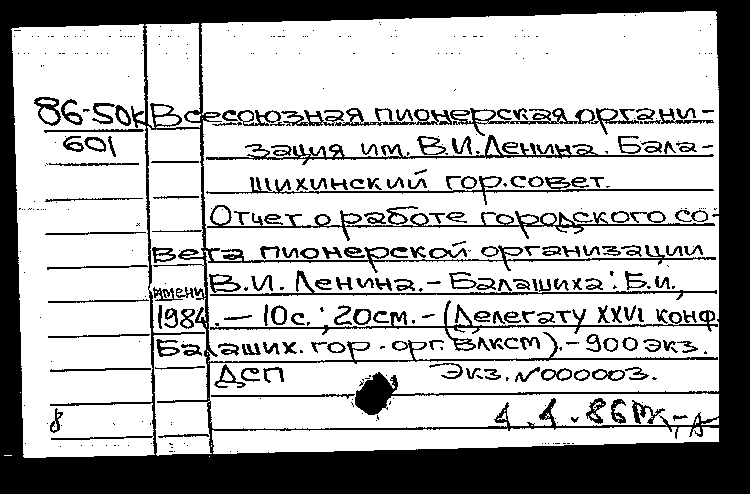 86-50к Всесоюзная пионерская органи-
601 зация им. В.И.Ленина. Бала-
шихинский гор.совет.
Отчет о работе городского со-
вета пионерской организации
имени В.И. Ленина.- Балашиха: Б.и.,
1984.- 10с.; 20см.- (Делегату XXVI конф.
Балаших. гор. орг. ВЛКСМ).- 900 экз.
ДСП Экз. №000003.
8 4.4.86